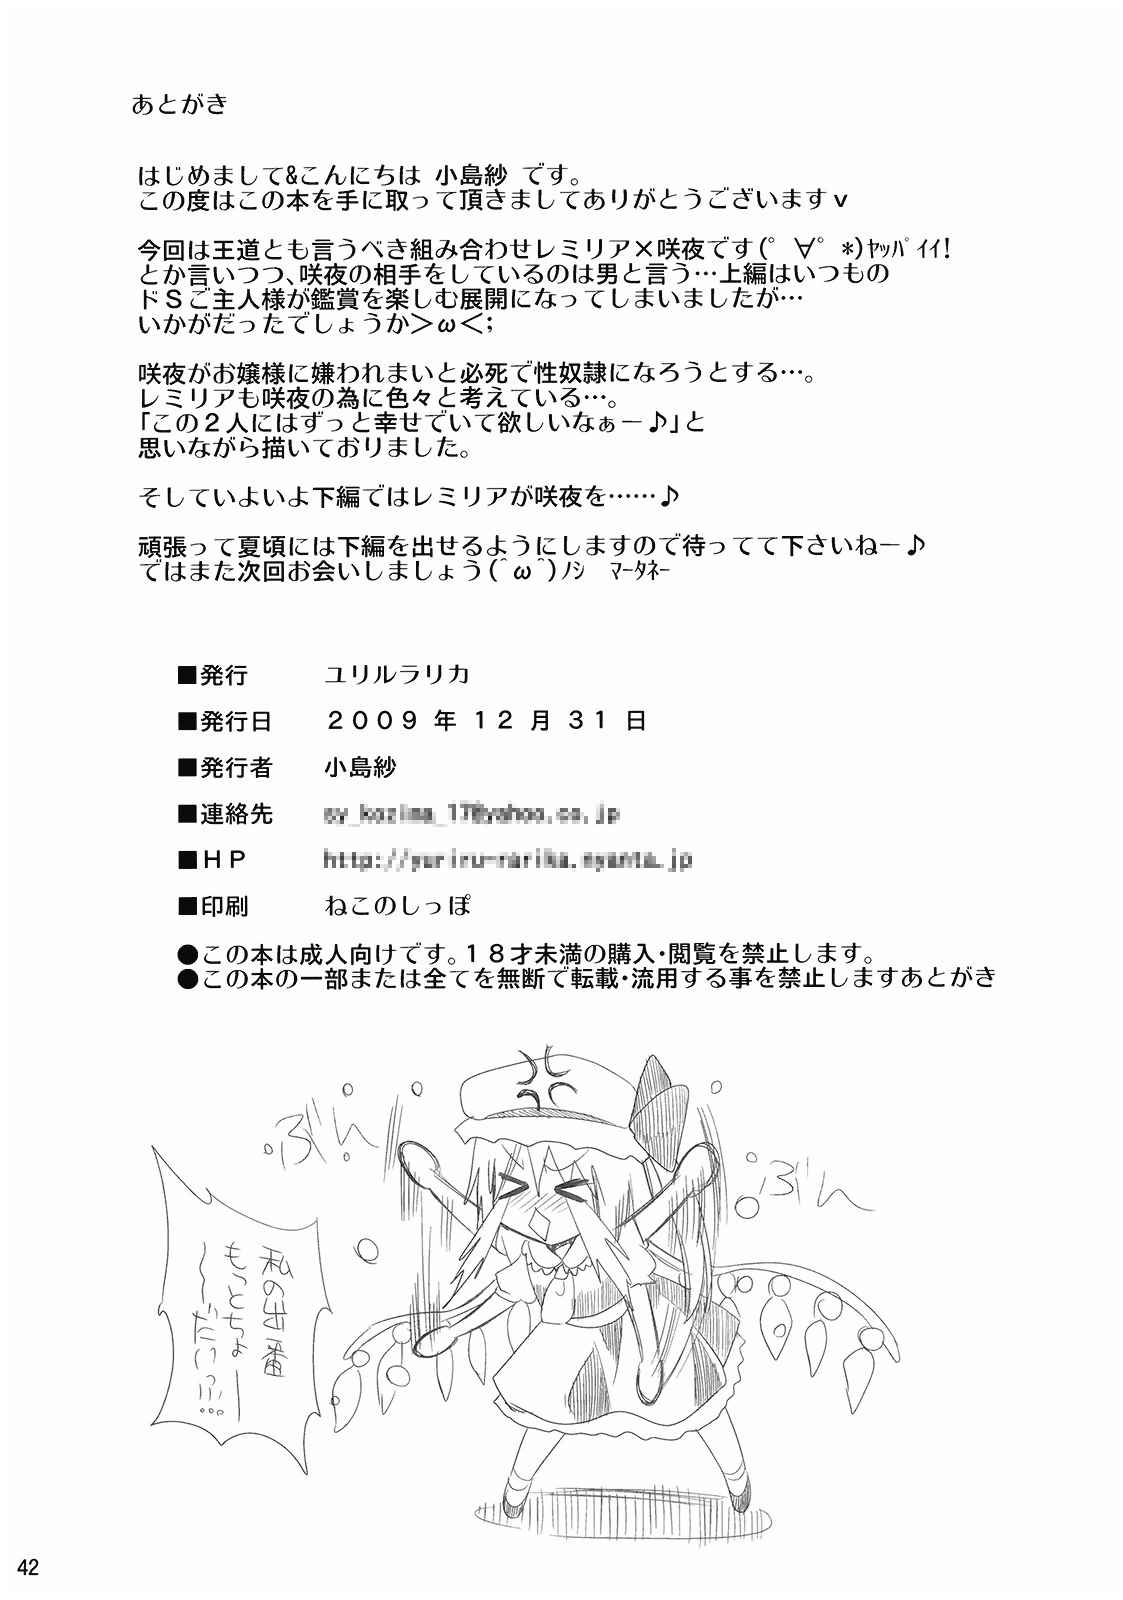 あとがき
はじめまして&こんにちは 小島紗 です。
この度はこの本を手に取って頂きましてありがとうございますｖ
今回は王道とも言うべき組み合わせレミリア×咲夜です(ﾟ∀ﾟ*)ﾔｯﾊﾟｲｲ!
とか言いつつ、咲夜の相手をしているのは男と言う…上編はいつもの
ドＳご主人様が鑑賞を楽しむ展開になってしまいましたが…
いかがだったでしょうか＞ω＜;
咲夜がお嬢様に嫌われまいと必死で性奴隷になろうとする…。
レミリアも咲夜の為に色々と考えている…。
「この２人にはずっと幸せでいて欲しいなぁー♪」と
思いながら描いておりました。
そしていよいよ下編ではレミリアが咲夜を……♪
頑張って夏頃には下編を出せるようにしますので待ってて下さいねー♪
ではまた次回お会いしましょう(^ω^)ﾉｼ ﾏｰﾀﾈｰ
■発行 ユリルラリカ
■発行日 ２００９ 年 １２ 月 ３１ 日
■発行者 小島紗
■連絡先
■ＨＰ
■印刷 ねこのしっぽ
●この本は成人向けです。１８才未満の購入・閲覧を禁止します。
●この本の一部または全てを無断で転載・流用する事を禁止しますあとがき
ぶん
ぶん
私の出番
もっとちょー
〜〜だいっ!!…
42